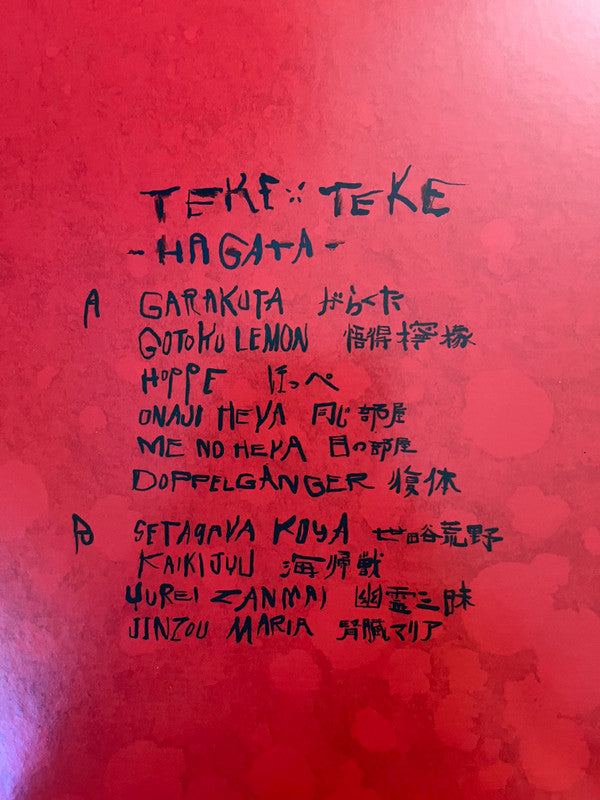 TEKE TEKE
-HAGATA-
A GARAKUTA がらくた
GOTOKU LEMON 悟得檸檬
HOPPE ほっぺ
ONAJI HEYA 同じ部屋
ME NO HEYA 目の部屋
DOPPELGÄNGER 複体
B SETAGAYA KOYA 世谷荒野
KAIKIJYU 海帰獣
YUREI ZANMAI 幽霊三昧
JINZOU MARIA 腎臓マリア